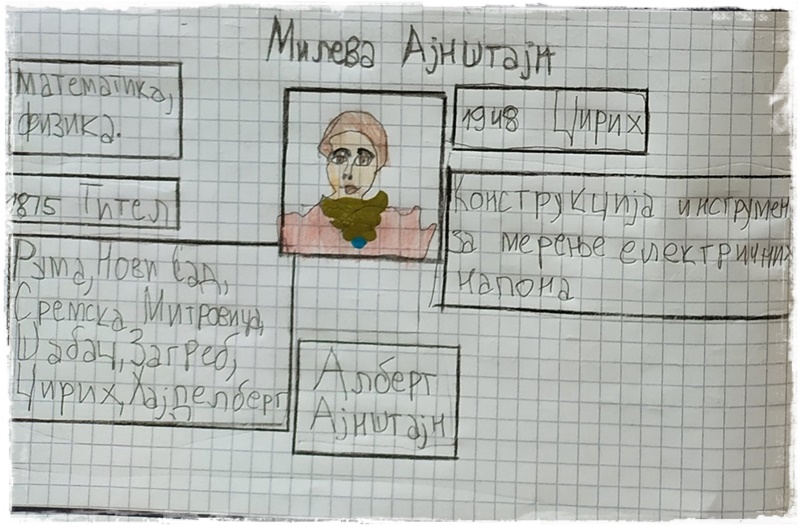 Милева Ајнштајн
математика,
физика.
1948 Цирих
1875 Тител
Конструкција инструмен
за мерење електричних
напона
Рума, Нови Сад,
Сремска Митровица,
Шабац, Загреб,
Цирих, Хајделберг
Алберт
Ајнштајн